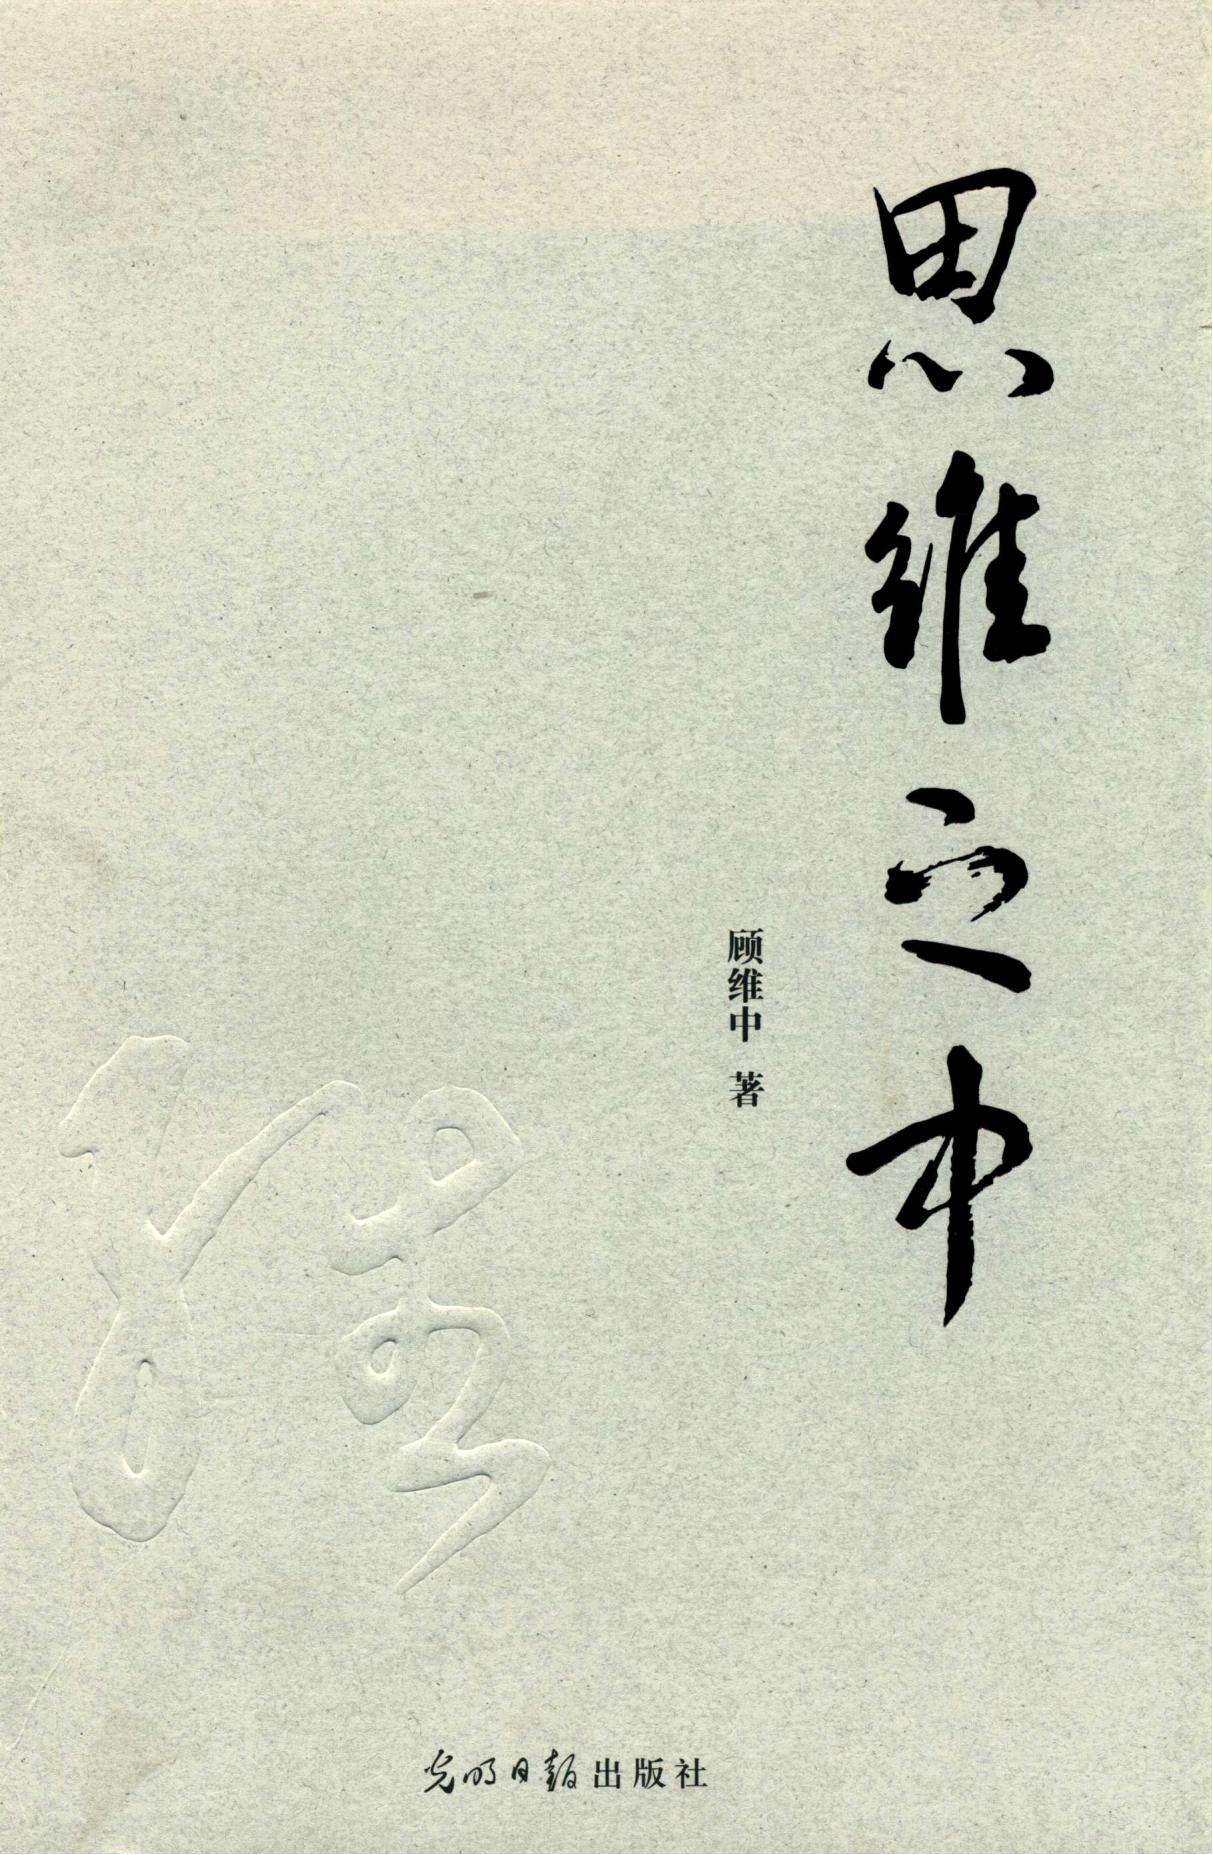 思维之中
顾维中 著
光明日报出版社